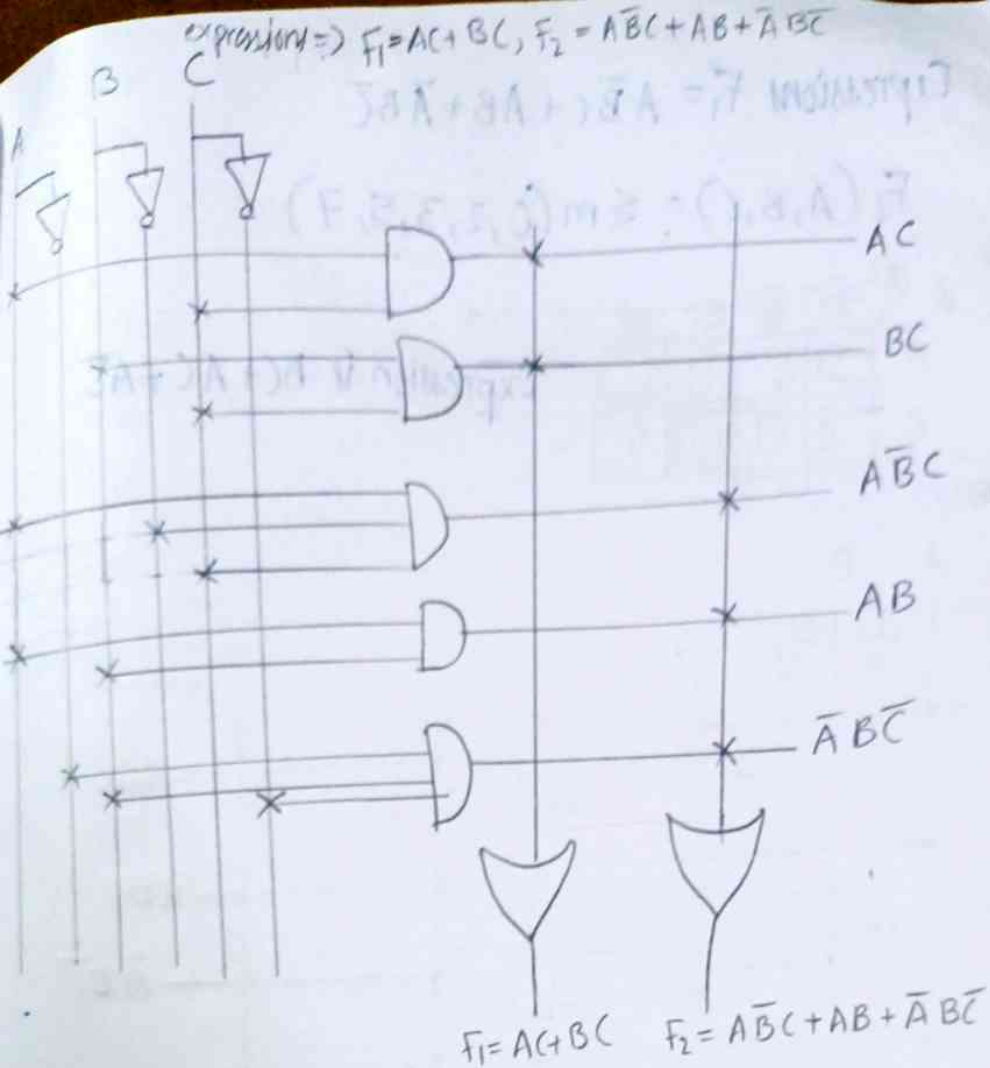 expressions => F₁=AC+BC, F₂ = AB̅C+AB+A̅BC̅
A B C
AC
BC
AB̅C
AB
A̅BC̅
F₁=AC+BC F₂=AB̅C+AB+A̅BC̅